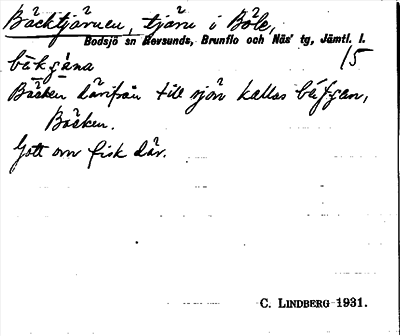 Bäcktjärnen, tjärn i Böle,
Bodsjö sn Revsunds, Brunflo och Näs' tg, Jämtl. l.
15
bäkʒäna
Bäcken därifrån till sjön kallas
Bäcken.
Gott om fisk där.
C. LINDBERG 1931.